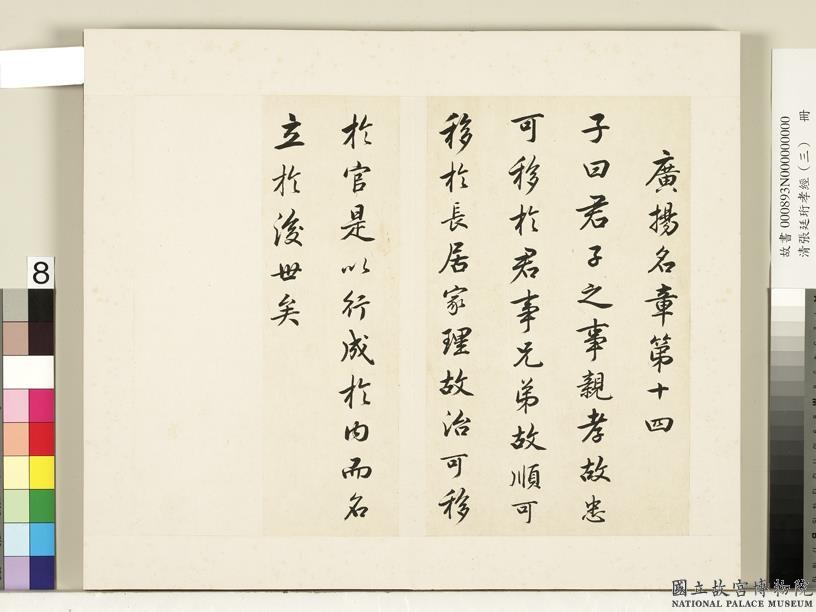 廣揚名章第十四
子曰君子之事親孝故忠
可移於君事兄弟故順可
移於長居家理故治可移
於官是以行成於內而名
立於後世矣
8
故書 000893N000000000
清張廷珩孝經(三) 冊
國立故宮博物院
NATIONAL PALACE MUSEUM